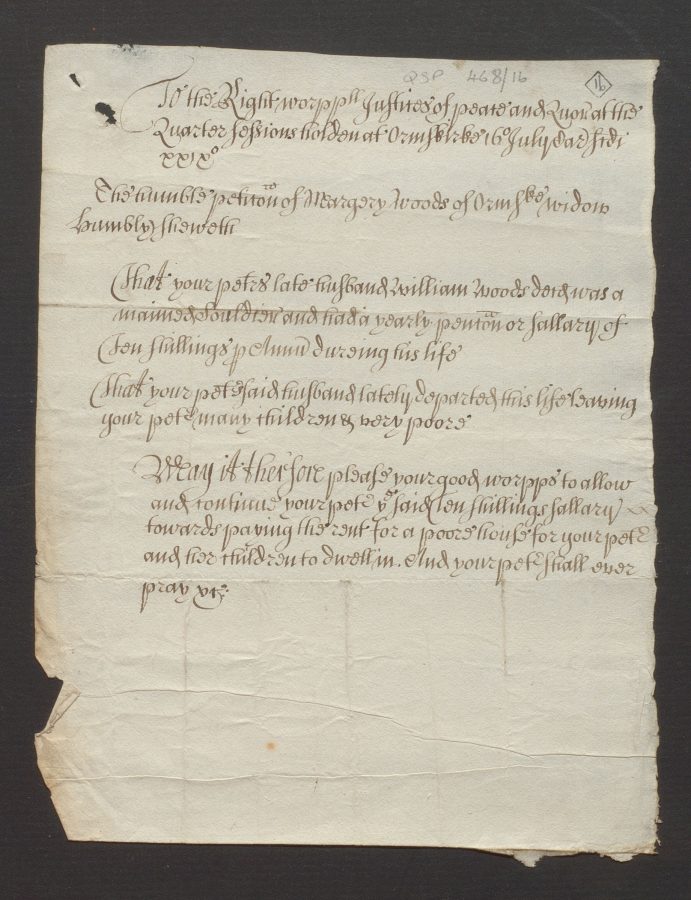 QSP 468/16
16
To the Right worppll Justices of peace and Quor at the
Quarter sessions holden at Ormskirke 16 July Car scdi
xxixo
The humble peticon of Margery Woods of Ormske widow
Humbly sheweth
That your petrs late husband William Woods decd was a
maimed Souldier and had a yearly pencon or sallary of
Ten shillings p Annu dureing his life
That your petr said husband lately departed this life leaveing
your petr many children & very poore
May it therefore please your good worpps to allow
and continue your petr ye said Ten shillings sallary
towards paying the rent for a poore house for your petr
and her children to dwell in. And your petr shall ever
pray &c